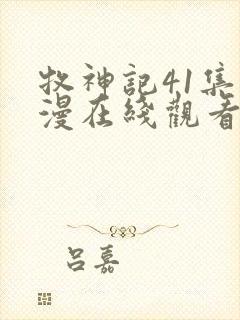 牧神記41集
漫在綫觀看
呂嘉